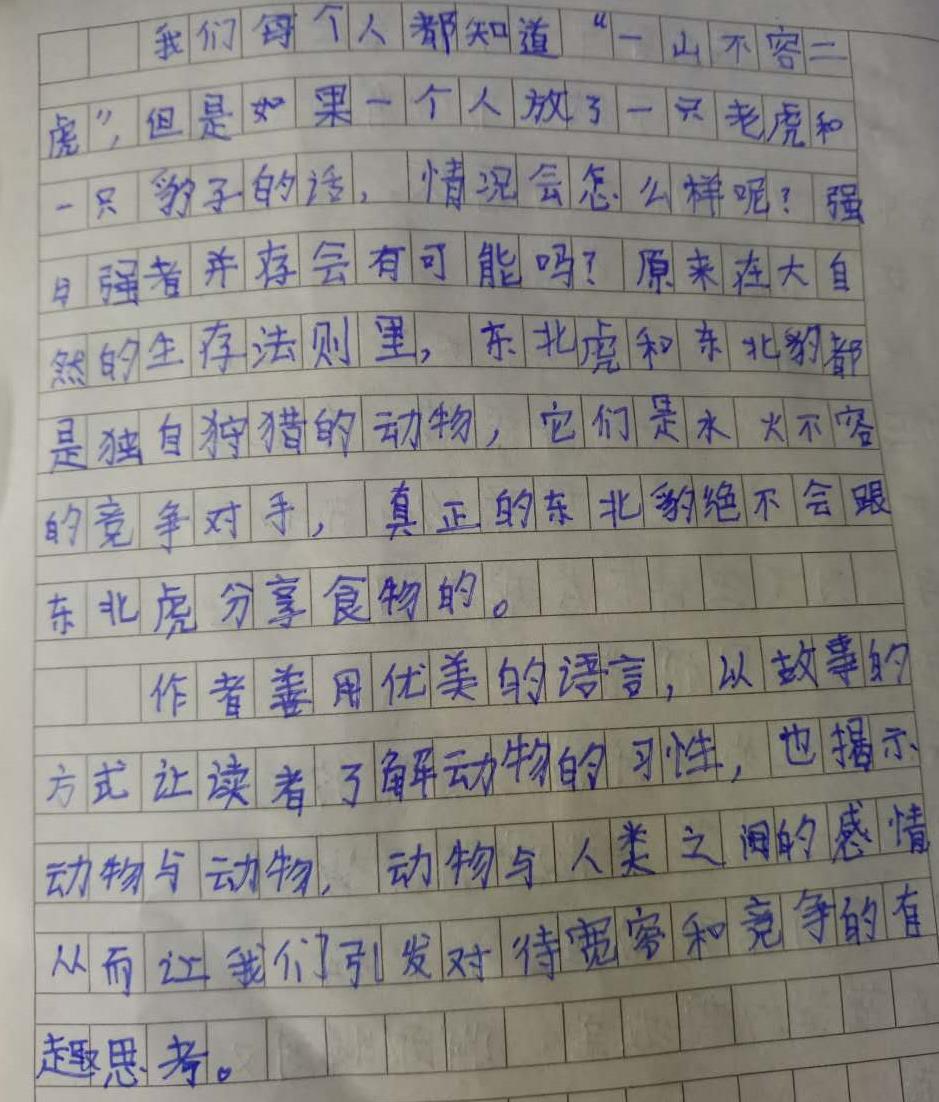 我们每个人都知道“一山不容二
虎”，但是如果一个人放了一只老虎和
一只豹子的话，情况会怎么样呢？强
与强者并存会有可能吗？原来在大自
然的生存法则里，东北虎和东北豹都
是独自狩猎的动物，它们是水火不容
的竞争对手，真正的东北豹绝不会跟
东北虎分享食物的。
作者善用优美的语言，以故事的
方式让读者了解动物的习性，也揭示
动物与动物，动物与人类之间的感情
从而让我们引发对待宽容和竞争的有
趣思考。